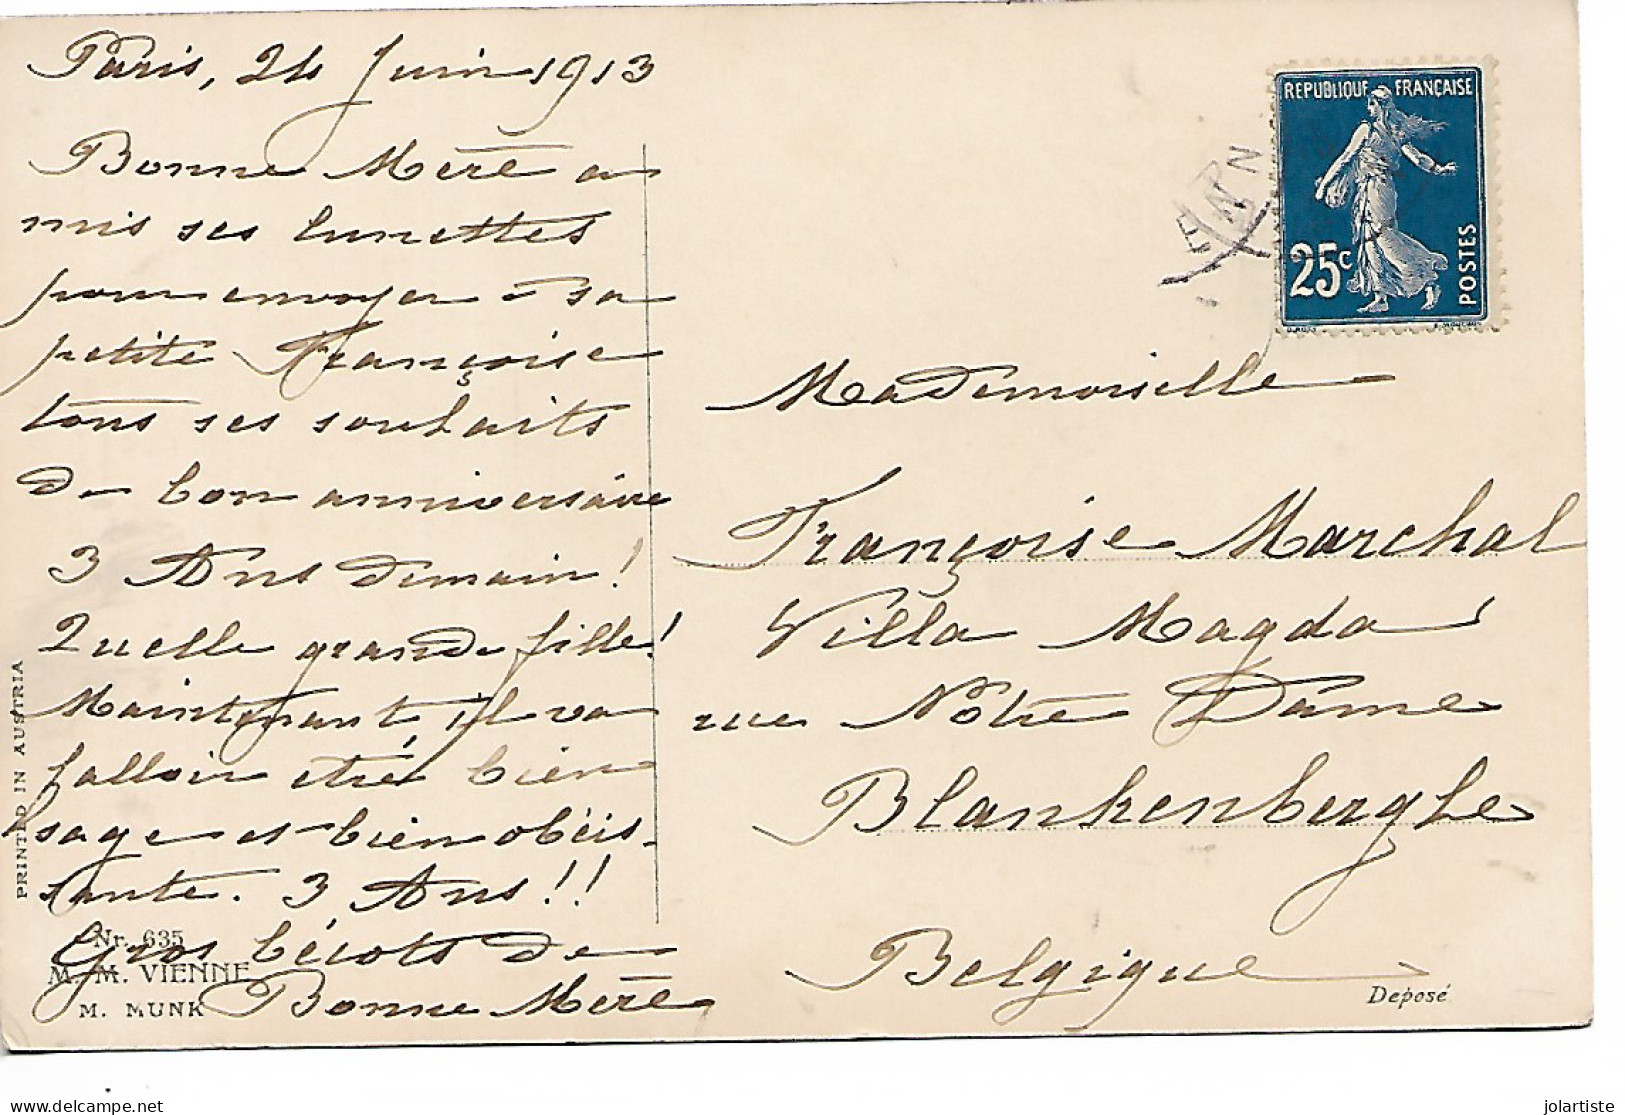 Paris, 24 Juin 1913
Bonne Mère a
mis ses lunettes
pour envoyer à sa
petite Françoise
tous ses souhaits
de bon anniversaire
3 Ans demain !
Quelle grande fille !
Maintenant, il va
falloir être bien
sage et bien obéis-
sante. 3 Ans !!
Gros bécots de
Bonne Mère
PRINTED IN AUSTRIA
Nr. 635
M. M. VIENNE
M. MUNK
REPUBLIQUE FRANÇAISE
25c
POSTES
Mademoiselle
Françoise Marchal
Villa Magda
rue Nôtre Dame
Blankenberghe
Belgique
Deposé
delcampe.net
jolartiste